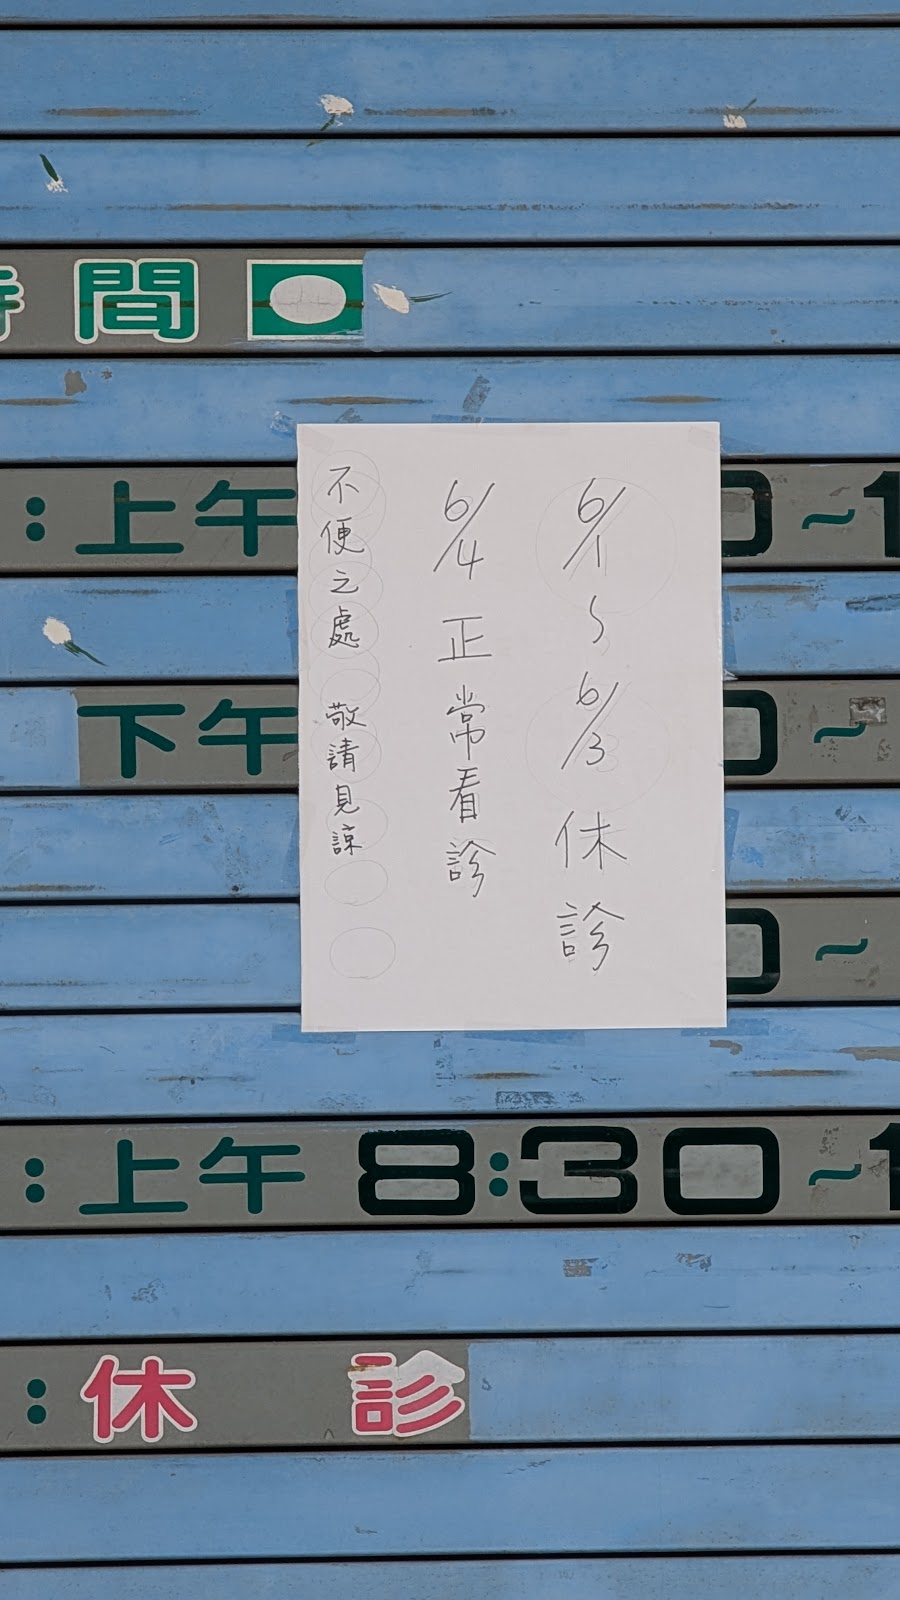 時間
：上午 0～1
下午 0～
0～
6/1～6/3休診
6/4正常看診
不便之處 敬請見諒
：上午 8:30～1
：休 診